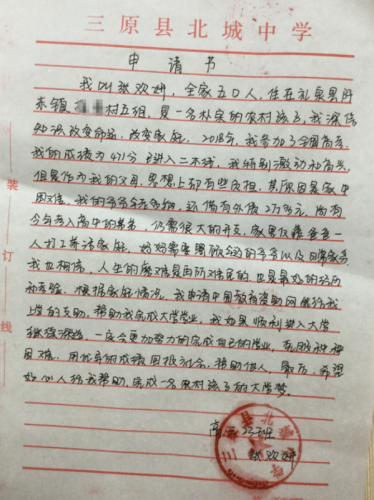 三原县北城中学
申请书
我叫张欢妍,全家五口人,住在礼泉县阡
东镇 村五组,是一名朴实的农村孩子,我深信
知识改变命运,改变家庭。2018年,我参加了全国高考,
我的成绩为471分已进入二本线,我特别激动和高兴,
但是作为我的父母,思想上却有些负担,其原因是家中
困难,我的爷爷 还借有外债2万多元,尚有
今年考入高中的弟弟,仍需很大的开支,家里仅靠爸爸一
人打工养活家庭,妈妈需要照顾 的爷爷以及田
我也相信,人生的磨难是再所难免的,也是最好的经历
和考验,根据家庭情况,我申请中国教育资助网能给我
上学的支助,帮助我完成大学学业,我如果顺利进入大学
继续深造,一定会更加努力的完成自己的学业,克服种种
困难,用优异的成绩回报社会,帮助他人,最后,希望
好心人给我帮助,完成一名农村孩子的大学梦。
高三 班
张欢妍
装订线